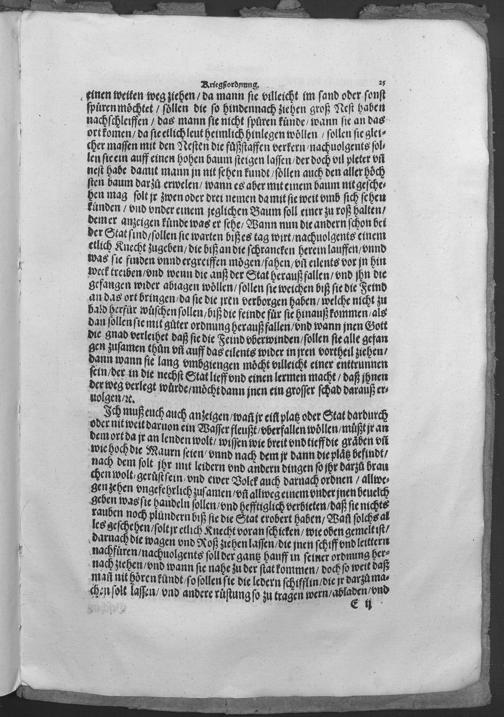 Kriegßordnung. 25
einen weiten weg ziehen / da mann sie villeicht im sand oder sonst
spüren möchtet / söllen die so hindennach ziehen groß Nest haben
nachschleiffen / das mann sie nicht spüren künde / wann sie an das
ort komen / da sie etlich leut heimlich hinlegen wöllen / sollen sie glei-
cher massen mit den Nesten die füßstaffen verkern / nachuolgents sol-
len sie ein auff einen hohen baum steigen lassen / der doch vil pletter vñ
nest habe damit mann jn nit sehen kundt / söllen auch den aller höch
sten baum darzů erwelen / wann es aber mit einem baum nit gesche-
hen mag solt jr zwen oder drei nemen da mit sie weit vmb sich sehen
künden / vnd vnder einem jeglichen Baum soll einer zu roß halten /
dem er anzeigen künde was er sehe / Wann nun die andern schon bei
der Stat sind / sollen sie warten biß es tag wirt / nachuolgents einem
etlich Knecht zugeben / die biß an die schrancken herein lauffen / vnnd
was sie finden vnnd ergreiffen mögen / fahen / vñ eilents vor jn hin
weck treiben / vnd wenn die auß der Stat herauß fallen / vnd jhn die
gefangen wider abjagen wöllen / sollen sie weichen biß sie die Feind
an das ort bringen / da sie die jren verborgen haben / welche nicht zu
bald herfür wüschen sollen / biß die feinde für sie hinauß kommen / als
dan söllen sie mit gůter ordnung herauß fallen / vnd wann jnen Gott
die gnad verleihet daß sie die Feind vberwinden / söllen sie alle gefan
gen zusamen thůn vñ auff das eilents wider in jren vortheil ziehen /
dann wann sie lang vmbgiengen möcht villeicht einer entrunnen
sein / der in die nechst Stat lieff vnd einen lermen macht / daß jhnen
der weg verlegt würde / möcht dann jnen ein grosser schad darauß er-
uolgen / ꝛc.
Ich muß euch auch anzeigen / wañ jr eiñ platz oder Stat dardurch
oder nit weit daruon ein Wasser fleußt / vberfallen wöllen / můßt jr an
dem ort da jr an lenden wolt / wissen wie breit vnd tieff die gräben vñ
wie hoch die Maurn seien / vnnd nach dem jr dann die plätz befindt /
nach dem solt jhr mit leidern vnd andern dingen so jhr darzů brau
chen wolt / gerüst sein / vnd ewer Volck auch darnach ordnen / allwe-
gen zehen vngefehrlich zusamen / vñ allweg einem vnder jnen beuelch
geben was sie handeln sollen / vnd hefftiglich verbieten / daß sie nichts
rauben noch plündern biß sie die Stat erobert haben / Wañ solchs al
les geschehen / solt jr etlich Knecht voran schicken / wie oben gemelt ist /
darnach die wagen vnd Roß ziehen lassen / die jnen schiff vnd leittern
nachfüren / nachuolgents soll der gantz hauff in seiner ordnung her-
nach ziehen / vnd wann sie nahe zu der stat kommen / doch so weit daß
mañ nit hören kündt / so söllen sie die ledern schifflin / die jr darzů ma-
chen solt lassen / vnd andere rüstung so zu tragen wern / abladen / vnd
E ij